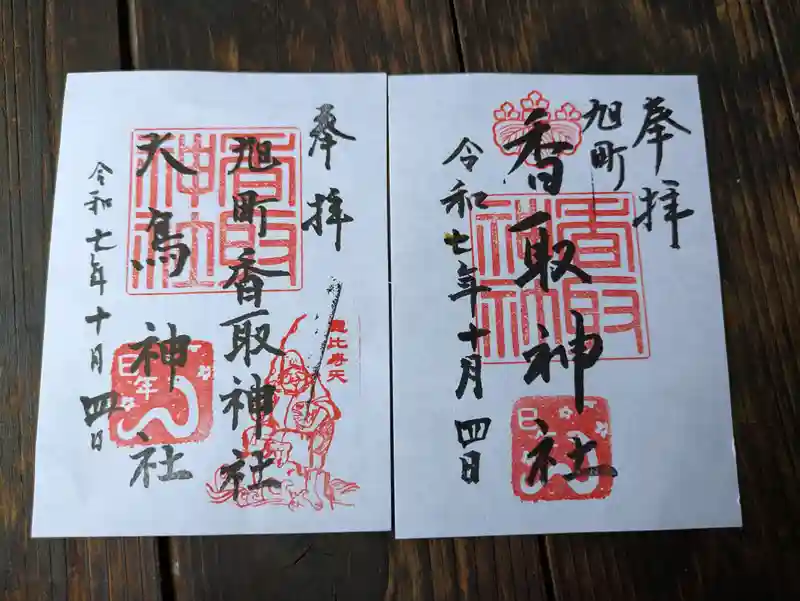 奉拝
旭町香取神社
大鳥神社
令和七年十月四日
香取神社
恵比寿天
巳年
奉拝
旭町
香取神社
令和七年十月四日
香取神社
巳